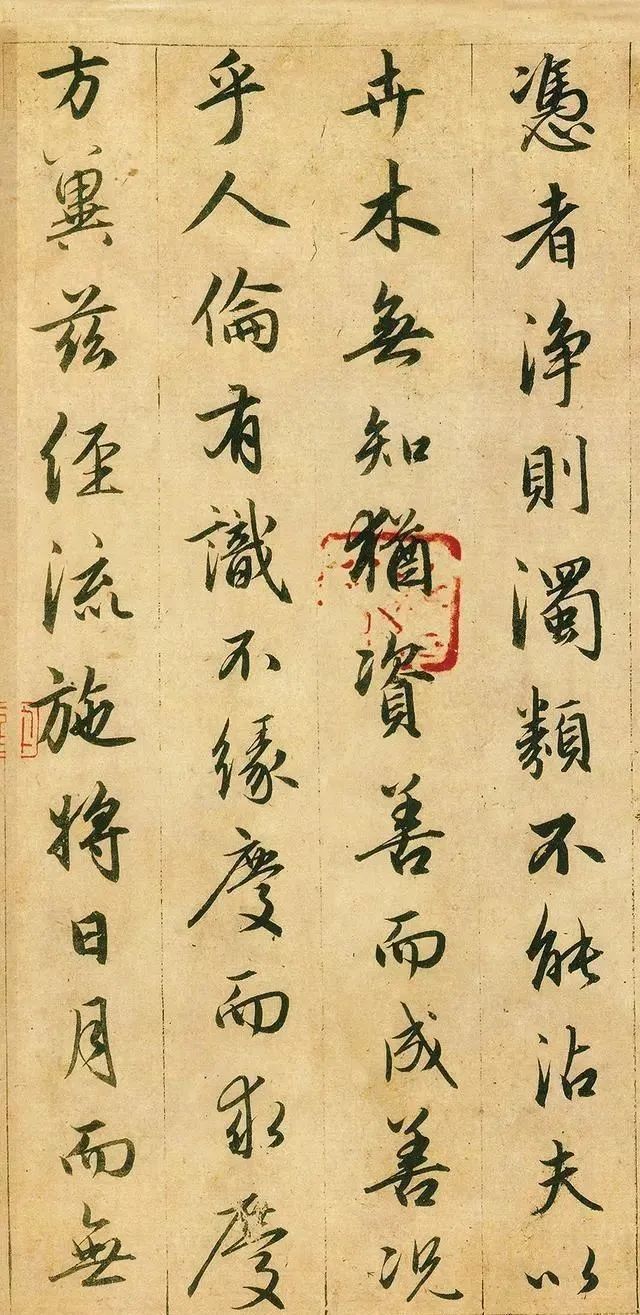 憑者淨則濁類不能沾夫以
卉木無知猶資善而成善況
乎人倫有識不緣慶而求慶
方冀茲經流施將日月而無